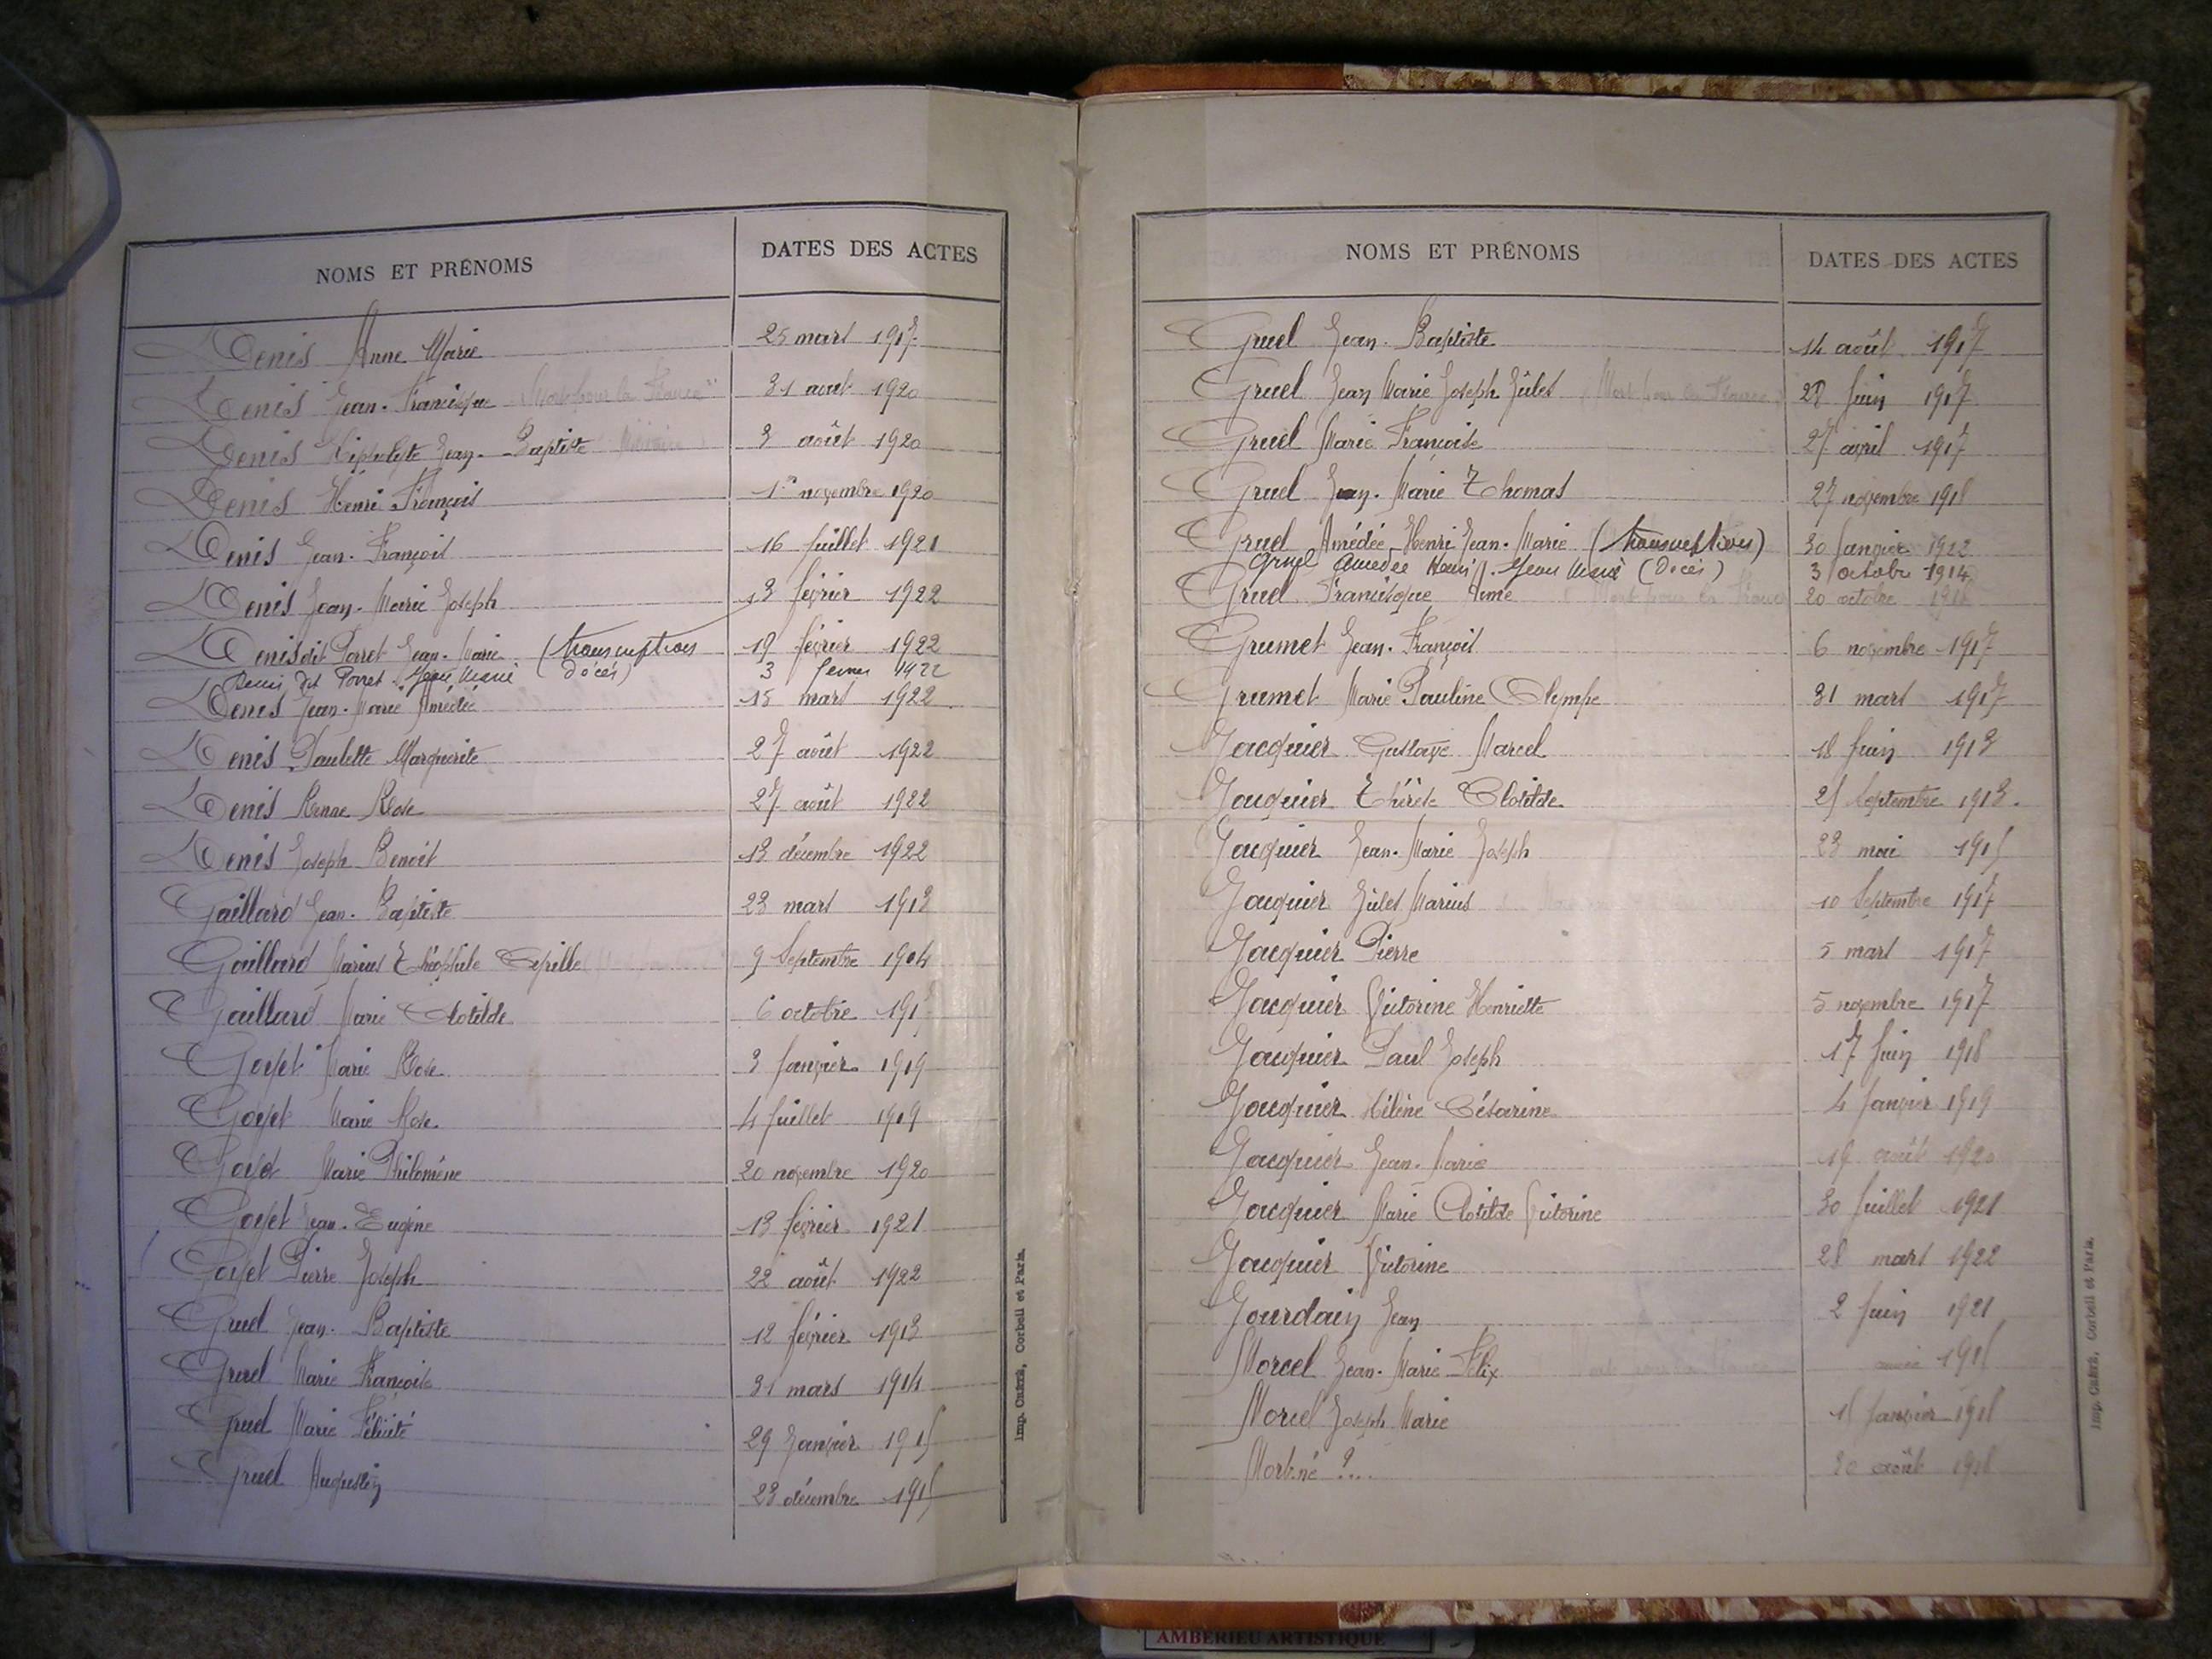 NOMS ET PRÉNOMS DATES DES ACTES
Denis Anne Marie 25 mars 1917
Denis Jean-Francisque "Mort pour la France" 31 août 1920
Denis Hippolyte Jean-Baptiste 3 août 1920
Denis Henri François 1er novembre 1920
Denis Jean-François 16 juillet 1921
Denis Jean-Marie Joseph 13 février 1922
Denis dit Porret Jean-Marie (transcription 19 février 1922
Denis dit Porret Jean Marie (Décés) 3 1922
Denis Jean-Marie Amédée 15 mars 1922
Denis Paulette Marguerite 27 août 1922
Denis Rose 27 août 1922
Denis Joseph Benoit 13 décembre 1922
Gaillard Jean-Baptiste 23 mars 1913
Gaillard Marius Théophile 9 Septembre
Gaillard Marie Clotilde 6 octobre
Goyet Marie Rose 3 janvier 1919
Goyet Marie Rose 4 juillet 1919
Goyet Marie Philomène 20 novembre 1920
Goyet Jean-Eugène 13 février 1921
Goyet Pierre Joseph 22 août 1922
Gruel Jean-Baptiste 12 février 1913
Gruel Marie Françoise 31 mars 1914
Gruel Marie Félicité 29 Janvier 1915
Gruel Augustin 23 décembre 1915
Imp. Corbeil et Paris.
NOMS ET PRÉNOMS DATES DES ACTES
Gruel Jean-Baptiste 14 août 1917
Gruel Jean Marie Joseph Jules Mort pour la France 28 juin 1917
Gruel Marie Françoise 27 avril 1917
Gruel Jean-Marie Thomas 27 novembre 1918
Gruel Amédée Henri Jean-Marie (transcription) 30 janvier 1922
Gruel Amédée Henri Jean Marie (Décés) 3 octobre 1914
Gruel Francisque Aimé Mort pour la France 20 octobre
Grumet Jean-François 6 novembre 1917
Grumet Marie Pauline Olympe 31 mars 1917
Jacquier Gustave Marcel 18 juin 1913
Jacquier Thérèse Clotilde Septembre 1913.
Jacquier Jean-Marie Joseph 23 mai 1915
Jacquier Jules Marius 10 Septembre 1917
Jacquier Pierre 5 mars 1917
Jacquier Victorine Henriette 5 novembre 1917
Jacquier Paul Joseph 17 juin 1918
Jacquier Hélène Césarine 4 janvier 1919
Jacquier Jean-Marie 19 août 1920
Jacquier Marie Clotilde Victorine 30 juillet 1921
Jacquier Victorine 28 mars 1922
Jourdain Jean 2 juin 1921
Morcel Jean-Marie Félix 1915
Morcel Joseph Marie janvier 1918
Mort-né ?... août 1918
Imp. Corbeil et Paris.
AMBÉRIEU ARTISTIQUE